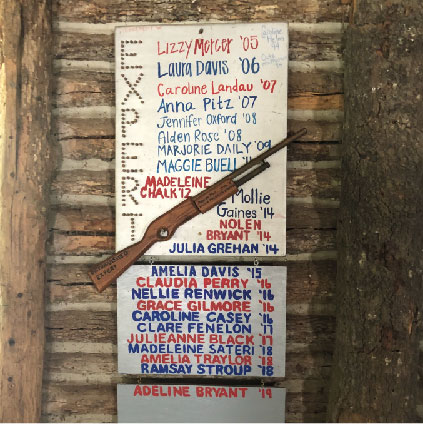 EXPERT
Lizzy Mercer '05
Laura Davis '06
Caroline Landau '07
Anna Pitz '07
Jennifer Oxford '08
Alden Rose '08
MARJORIE DAILY '09
MAGGIE BUELL '11
MADELEINE
CHALK '12
Mollie
Gaines '14
NOLEN
BRYANT '14
JULIA GREHAN '14
AMELIA DAVIS '15
CLAUDIA PERRY '16
NELLIE RENWICK '16
GRACE GILMORE '16
CAROLINE CASEY '16
CLARE FENELON '17
JULIEANNE BLACK '17
MADELEINE SATERI '18
AMELIA TRAYLOR '18
RAMSAY STROUP '18
ADELINE BRYANT '19